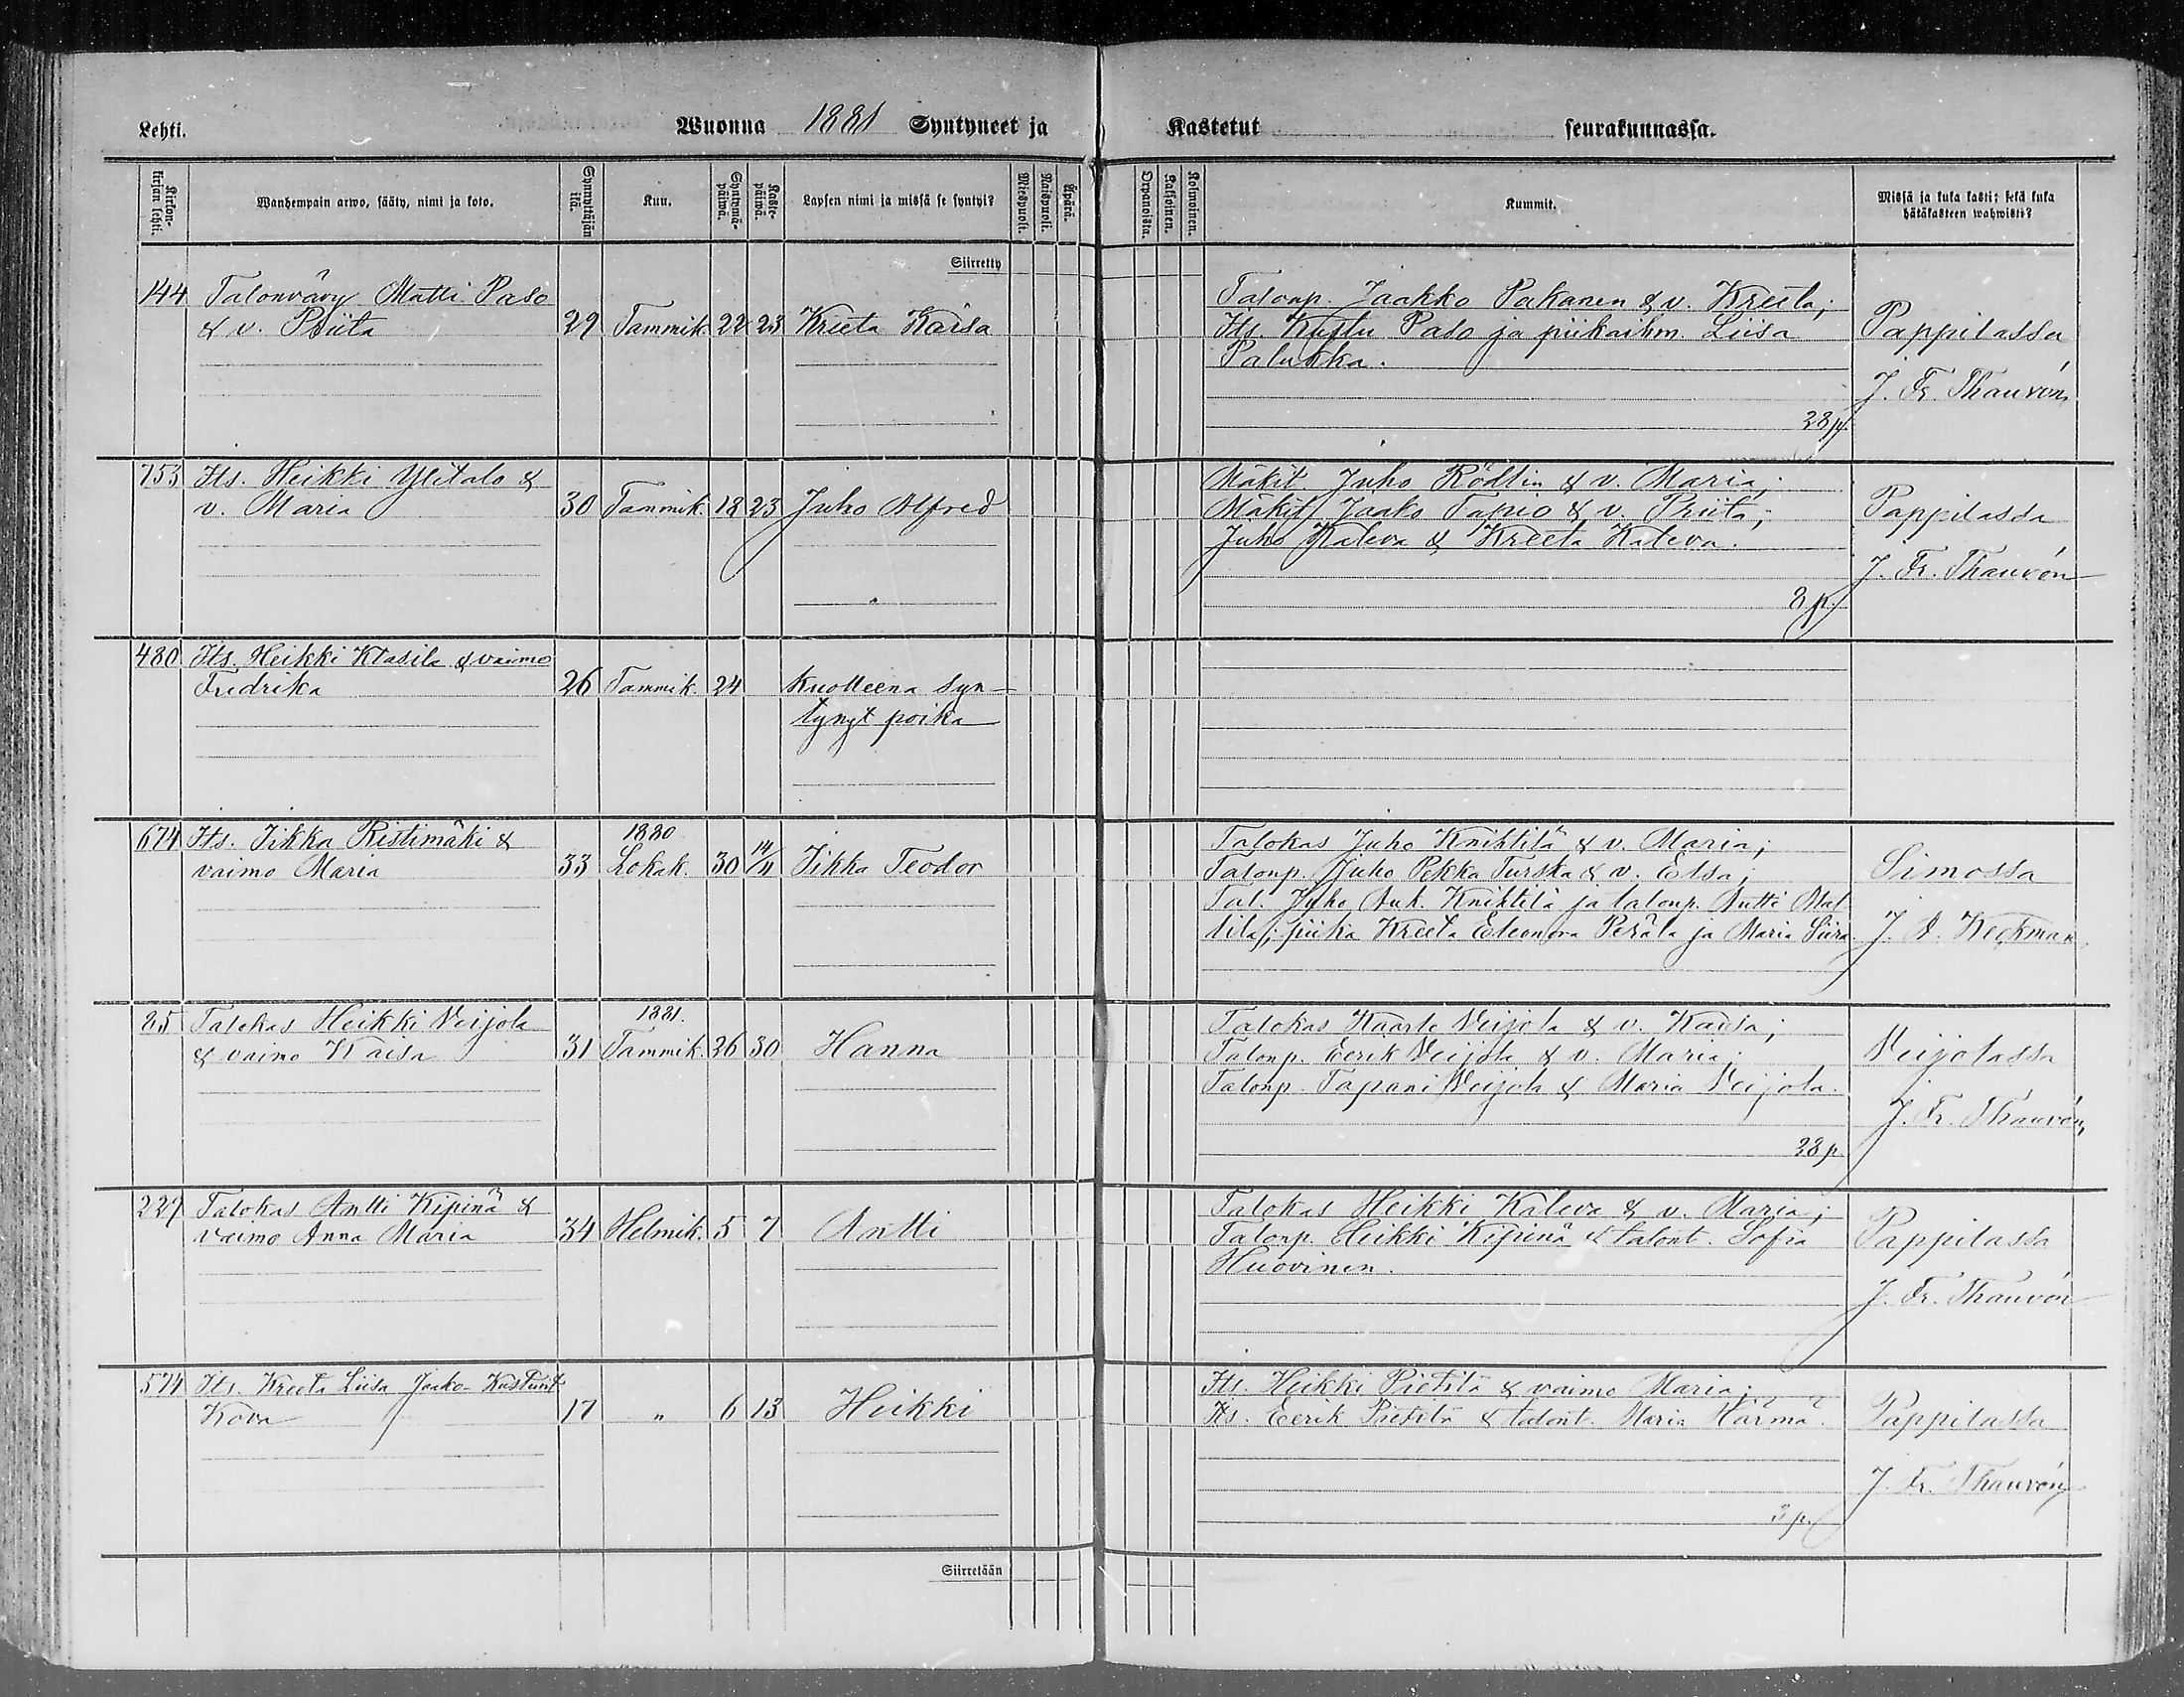 Lehti.
Wuonna 1881 Syntyneet ja
Kastetut seurakunnassa.
Kirkonkirjan lehti.
Wanhempain arwo, sääty, nimi ja koto.
Synnyttäjän ikä.
Kuu.
Syntymä-päiwä.
Kaste-päiwä.
Lapsen nimi ja missä se syntyi?
Miespuoli.
Naispuoli.
Äpärä.
Orpanoista.
Kaksoinen.
Kolmoinen.
Kummit.
Missä ja kuka kasti; sekä kuka
hätäkasteen wahwisti?
Siirretty
144 Talonvävy Matti Paso
& v. Priita 29 Tammik. 22 23 Kreeta Kaisa
Talonp. Jaakko Pakanen & v. Kreeta;
Its. Kustu Paso ja piikaihm. Liisa
Palukka.
28 p.
Pappilassa
J. Fr. Thauvón
753 Its. Heikki Ylitalo &
v. Maria 30 Tammik. 18 23 Juho Alfred
Mäkit. Juho Rödlin & v. Maria;
Mäkit. Jaako Tapio & v. Priita;
Juho Kaleva & Kreeta Kaleva.
8 p.
Pappilassa
J. Fr. Thauvón
480 Its. Heikki Klasila & vaimo
Fredrika 26 Tammik. 24 Kuolleena syn-
tynyt poika
674 Its. Iikka Ristimäki &
vaimo Maria 33 1880 Lokak. 30 14/11 Iikka Teodor
Talokas Juho Knihtilä & v. Maria;
Talonp. Juho Pekka Turska & v. Elsa;
Tal. Juho Auk. Knihtilä ja talonp. Antti Mat-
tila; piika Kreeta Eleonora Perälä ja Maria Siira
Simossa
J. A. Heckman
85 Talokas Heikki Veijola
& vaimo Kaisa 31 1881. Tammik. 26 30 Hanna
Talokas Kaarle Veijola & v. Kaisa;
Talonp. Eerik Veijola & v. Maria;
Talonp. Tapani Veijola & Maria Veijola.
28 p.
Veijolassa
J. Fr. Thauvón
229 Talokas Antti Kipinä &
vaimo Anna Maria 34 Helmik. 5 7 Antti
Talokas Heikki Kaleva & v. Maria;
Talonp. Heikki Kipinä & talont. Sofia
Huovinen.
Pappilassa
J. Fr. Thauvón
574 Its. Kreeta Liisa Jaako-
Kova 17 " 6 13 Heikki
Its. Heikki Pietilä & vaimo Maria;
Its. Eerik Pietilä & talont. Maria Härmä.
3 p.
Pappilassa
J. Fr. Thauvón
Siirretään